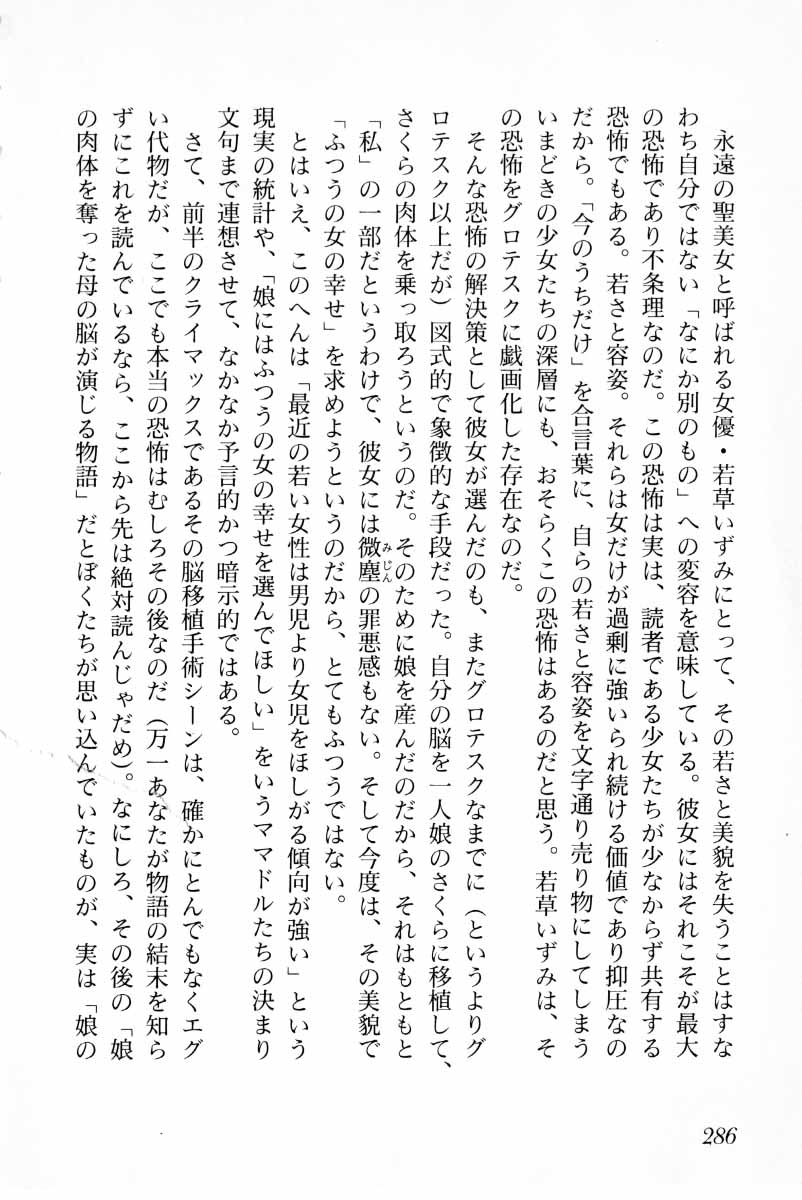 永遠の聖美女と呼ばれる女優・若草いずみにとって、その若さと美貌を失うことはすな
わち自分ではない「なにか別のもの」への変容を意味している。彼女にはそれこそが最大
の恐怖であり不条理なのだ。この恐怖は実は、読者である少女たちが少なからず共有する
恐怖でもある。若さと容姿。それらは女だけが過剰に強いられ続ける価値であり抑圧なの
だから。「今のうちだけ」を合言葉に、自らの若さと容姿を文字通り売り物にしてしまう
いまどきの少女たちの深層にも、おそらくこの恐怖はあるのだと思う。若草いずみは、そ
の恐怖をグロテスクに戯画化した存在なのだ。
そんな恐怖の解決策として彼女が選んだのも、またグロテスクなまでに（というよりグ
ロテスク以上だが）図式的で象徴的な手段だった。自分の脳を一人娘のさくらに移植して、
さくらの肉体を乗っ取ろうというのだ。そのために娘を産んだのだから、それはもともと
「私」の一部だというわけで、彼女には微塵みじんの罪悪感もない。そして今度は、その美貌で
「ふつうの女の幸せ」を求めようというのだから、とてもふつうではない。
とはいえ、このへんは「最近の若い女性は男児より女児をほしがる傾向が強い」という
現実の統計や、「娘にはふつうの女の幸せを選んでほしい」をいうママドルたちの決まり
文句まで連想させて、なかなか予言的かつ暗示的ではある。
さて、前半のクライマックスであるその脳移植手術シーンは、確かにとんでもなくエグ
い代物だが、ここでも本当の恐怖はむしろその後なのだ（万一あなたが物語の結末を知ら
ずにこれを読んでいるなら、ここから先は絶対読んじゃだめ）。なにしろ、その後の「娘
の肉体を奪った母の脳が演じる物語」だとぼくたちが思い込んでいたものが、実は「娘の
286